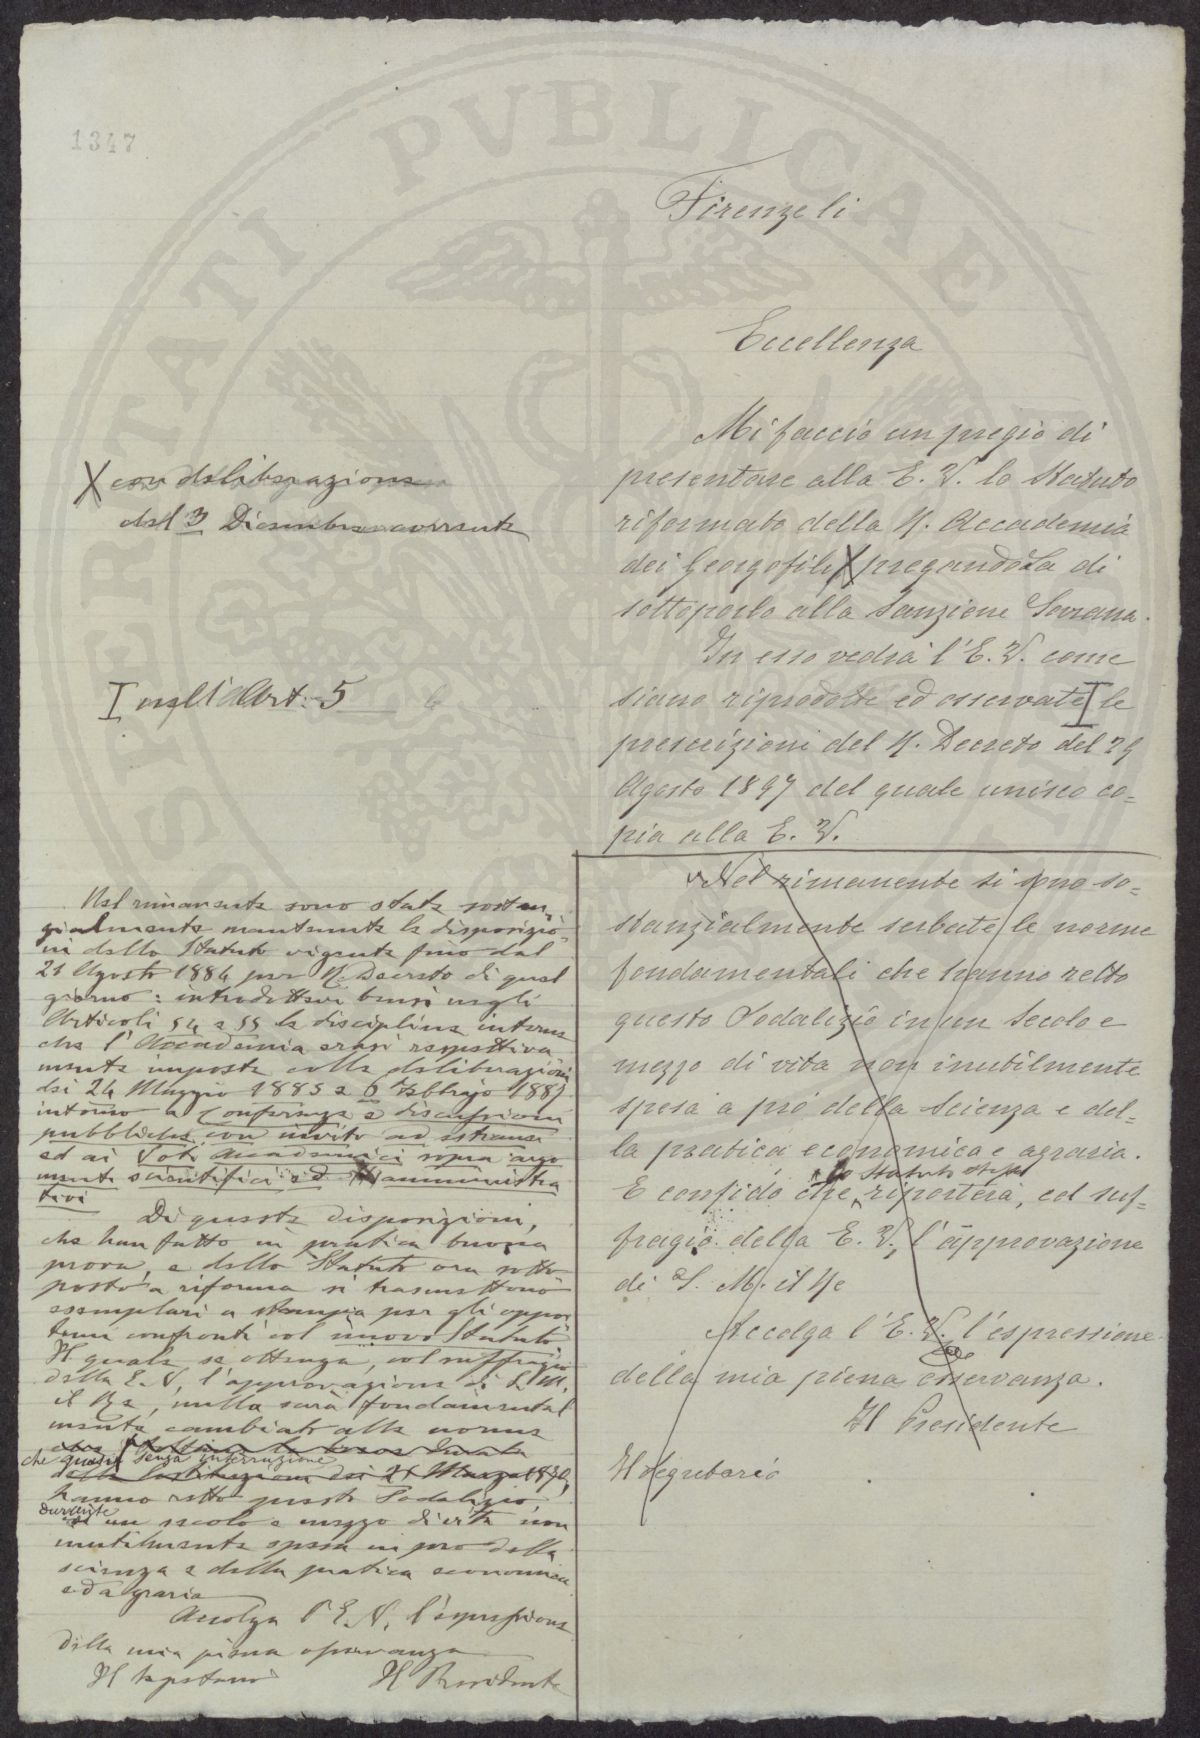 PROSPERITATI PVBLICAE
1347
Firenze li
Eccellenza
Mi faccio un pregio di
presentare alla E. V. lo Statuto
riformato della R. Accademia
dei Georgofili X pregandola di
sottoporlo alla Sanzione Sovrana.
In esso vedrà l'E. V. come
siano riprodotte ed osservate I le
prescrizioni del R. Decreto del 29
Agosto 1897 del quale unisco co=
pia alla E. V.
Nel rimanente si sono so=
stanzialmente serbate le norme
fondamentali che hanno retto
questo Sodalizio in un Secolo e
mezzo di vita non inutilmente
spesa a pró della Scienza e del=
la pratica economica e agraria.
lo Statuto stesso
E confido che riporterà, col suf=
fragio della E. V., l'approvazione
di S. M. il Re
Accolga l'E. V. l'espressione
della mia piena osservanza.
Il Presidente
Il Segretario
X con deliberazione
del 3 Dicembre corrente
I nell'Art: 5
Nel rimanente sono state sostan
zialmente mantenute le disposizio=
ni dello Statuto vigente fino dal
21 Agosto 1884 per R. Decreto di quel
giorno: introdottevi bensì negli
Articoli 54 e 55 le discipline interne
che l'Accademia erasi respettiva
mente imposte colle deliberazioni
dei 24 Maggio 1885 e 6 Febbrajo 1887
intorno a Conferenze e discussioni
pubbliche con invito ad estranei
ed ai Voti Accademici sopra argo
menti scientifici ed amministra
tivi
Di queste disposizioni,
che han fatto in pratica buona
prova, e dello Statuto ora sotto
posto a riforma si trasmettono
esemplari a stampa per gli oppor
tuni confronti col nuovo Statuto
Il quale se ottenga, col suffragio
della E. V., l'approvazione di S. M.
il Re, nulla sarà fondamental
mente cambiato alle norme
che quasi senza interruzione
hanno retto questo Sodalizio,
durante
un secolo e mezzo di vita non
inutilmente spesa in pro della
scienza e della pratica economica
ed agraria
Accolga l'E. V. l'espressione
della mia piena osservanza
Il Segretario Il Presidente